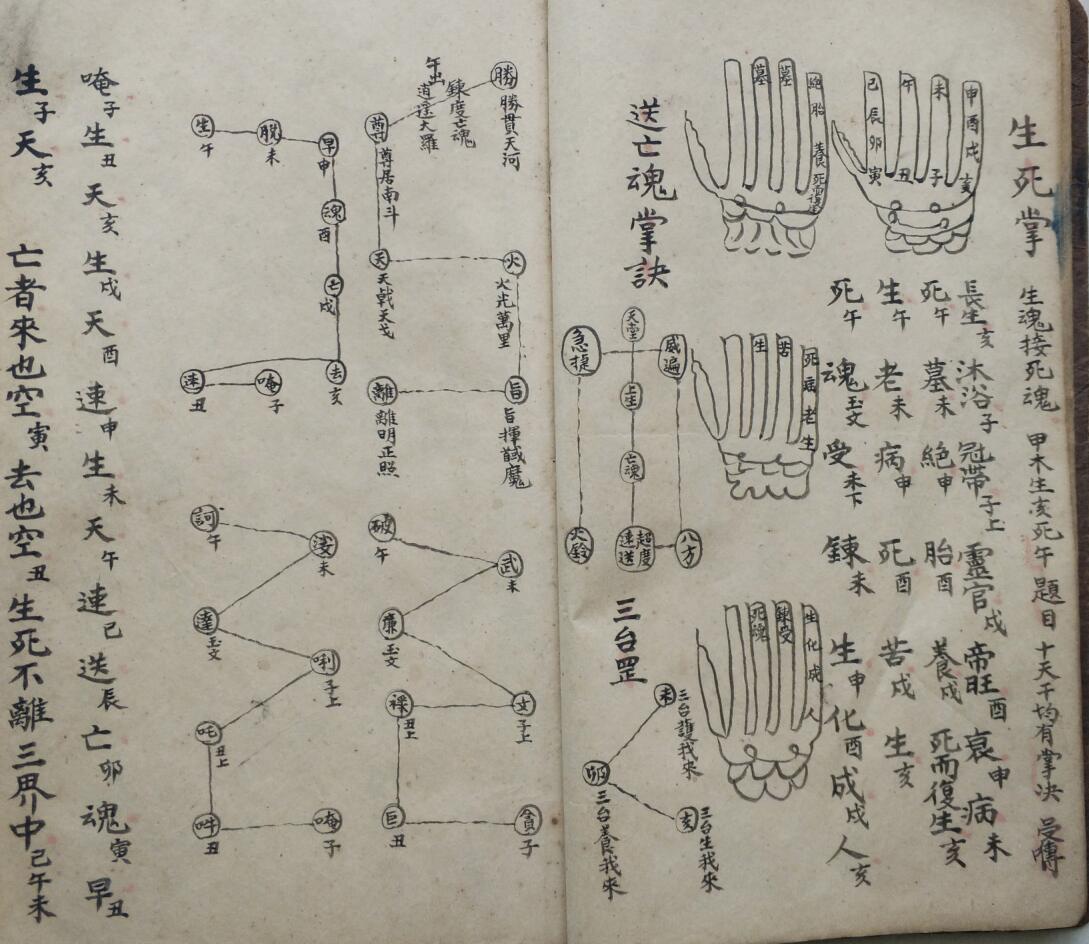 生死掌
生魂接死魂 甲木生亥死午 題目十天干均有掌決
長生亥 沐浴子 冠帶子上 靈官戌 帝旺酉 衰申 病未
死午 墓未 絕申 胎酉 養戌 死而復生亥
生午 老未 病申 死酉 苦戌 生亥
死午 魂玉文 受未下 鍊未 生申 化酉 成戌 人亥
申酉戌亥
未子
午丑
巳辰卯寅
絕胎養死而復生
墓
墓
死病老生
苦
生
生化成人
鍊受
死魂
送亡魂掌訣
威遍
八方
天堂
上生
亡魂
超度
速送
急捉
火鈴
三台罡
未 三台護我來
卯 三台養我來
亥 三台生我來
勝 勝貫天河
午出 鍊度亡魂
逍遙大羅
尊 尊居南斗
天 天戟天戈
火 火光萬里
旨 旨揮馘魔
離 離明正照
破午
武未
廉玉文
文子上
祿丑上
巨丑
貪子
生午
脫未
早申
魂酉
亡戌
去亥
速丑
唵子
訶午
淺未
達玉文
唎子上
吒丑上
吽丑
唵子
唵子 生丑 天亥 生戌 天酉 連申 生未 天午 連巳 送辰 亡卯 魂寅 早丑
生子 天亥 亡者來也空寅 去也空丑 生死不離三界中巳午未